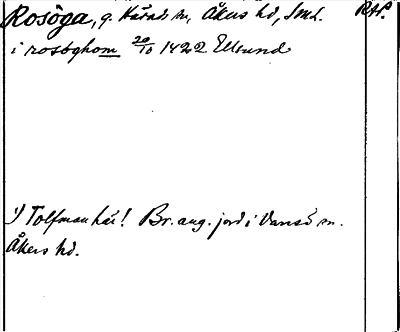 Rosöga, g. Härads sn, Åkers hd, Sml. RAP.
i rosøghom 20/10 1422 Ellsund
1) Tolfman här! Br. ang. jord i Vansö sn.
Åkers hd.